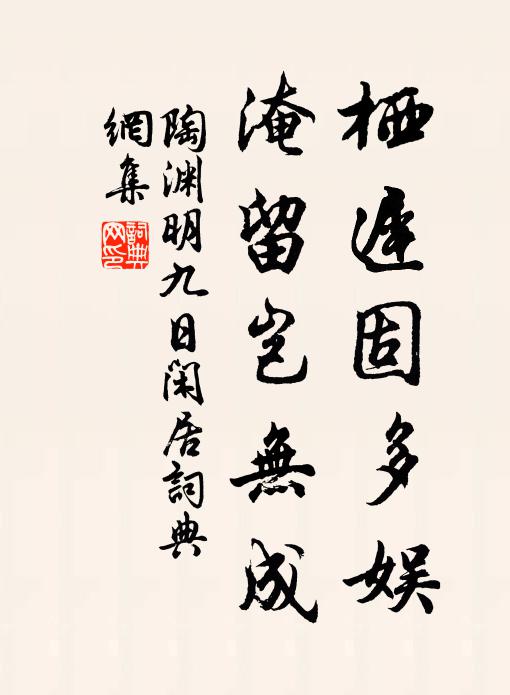 栖遲固多娱
淹留岂無成
陶渊明九日闲居詞典
網集
詞典
网印